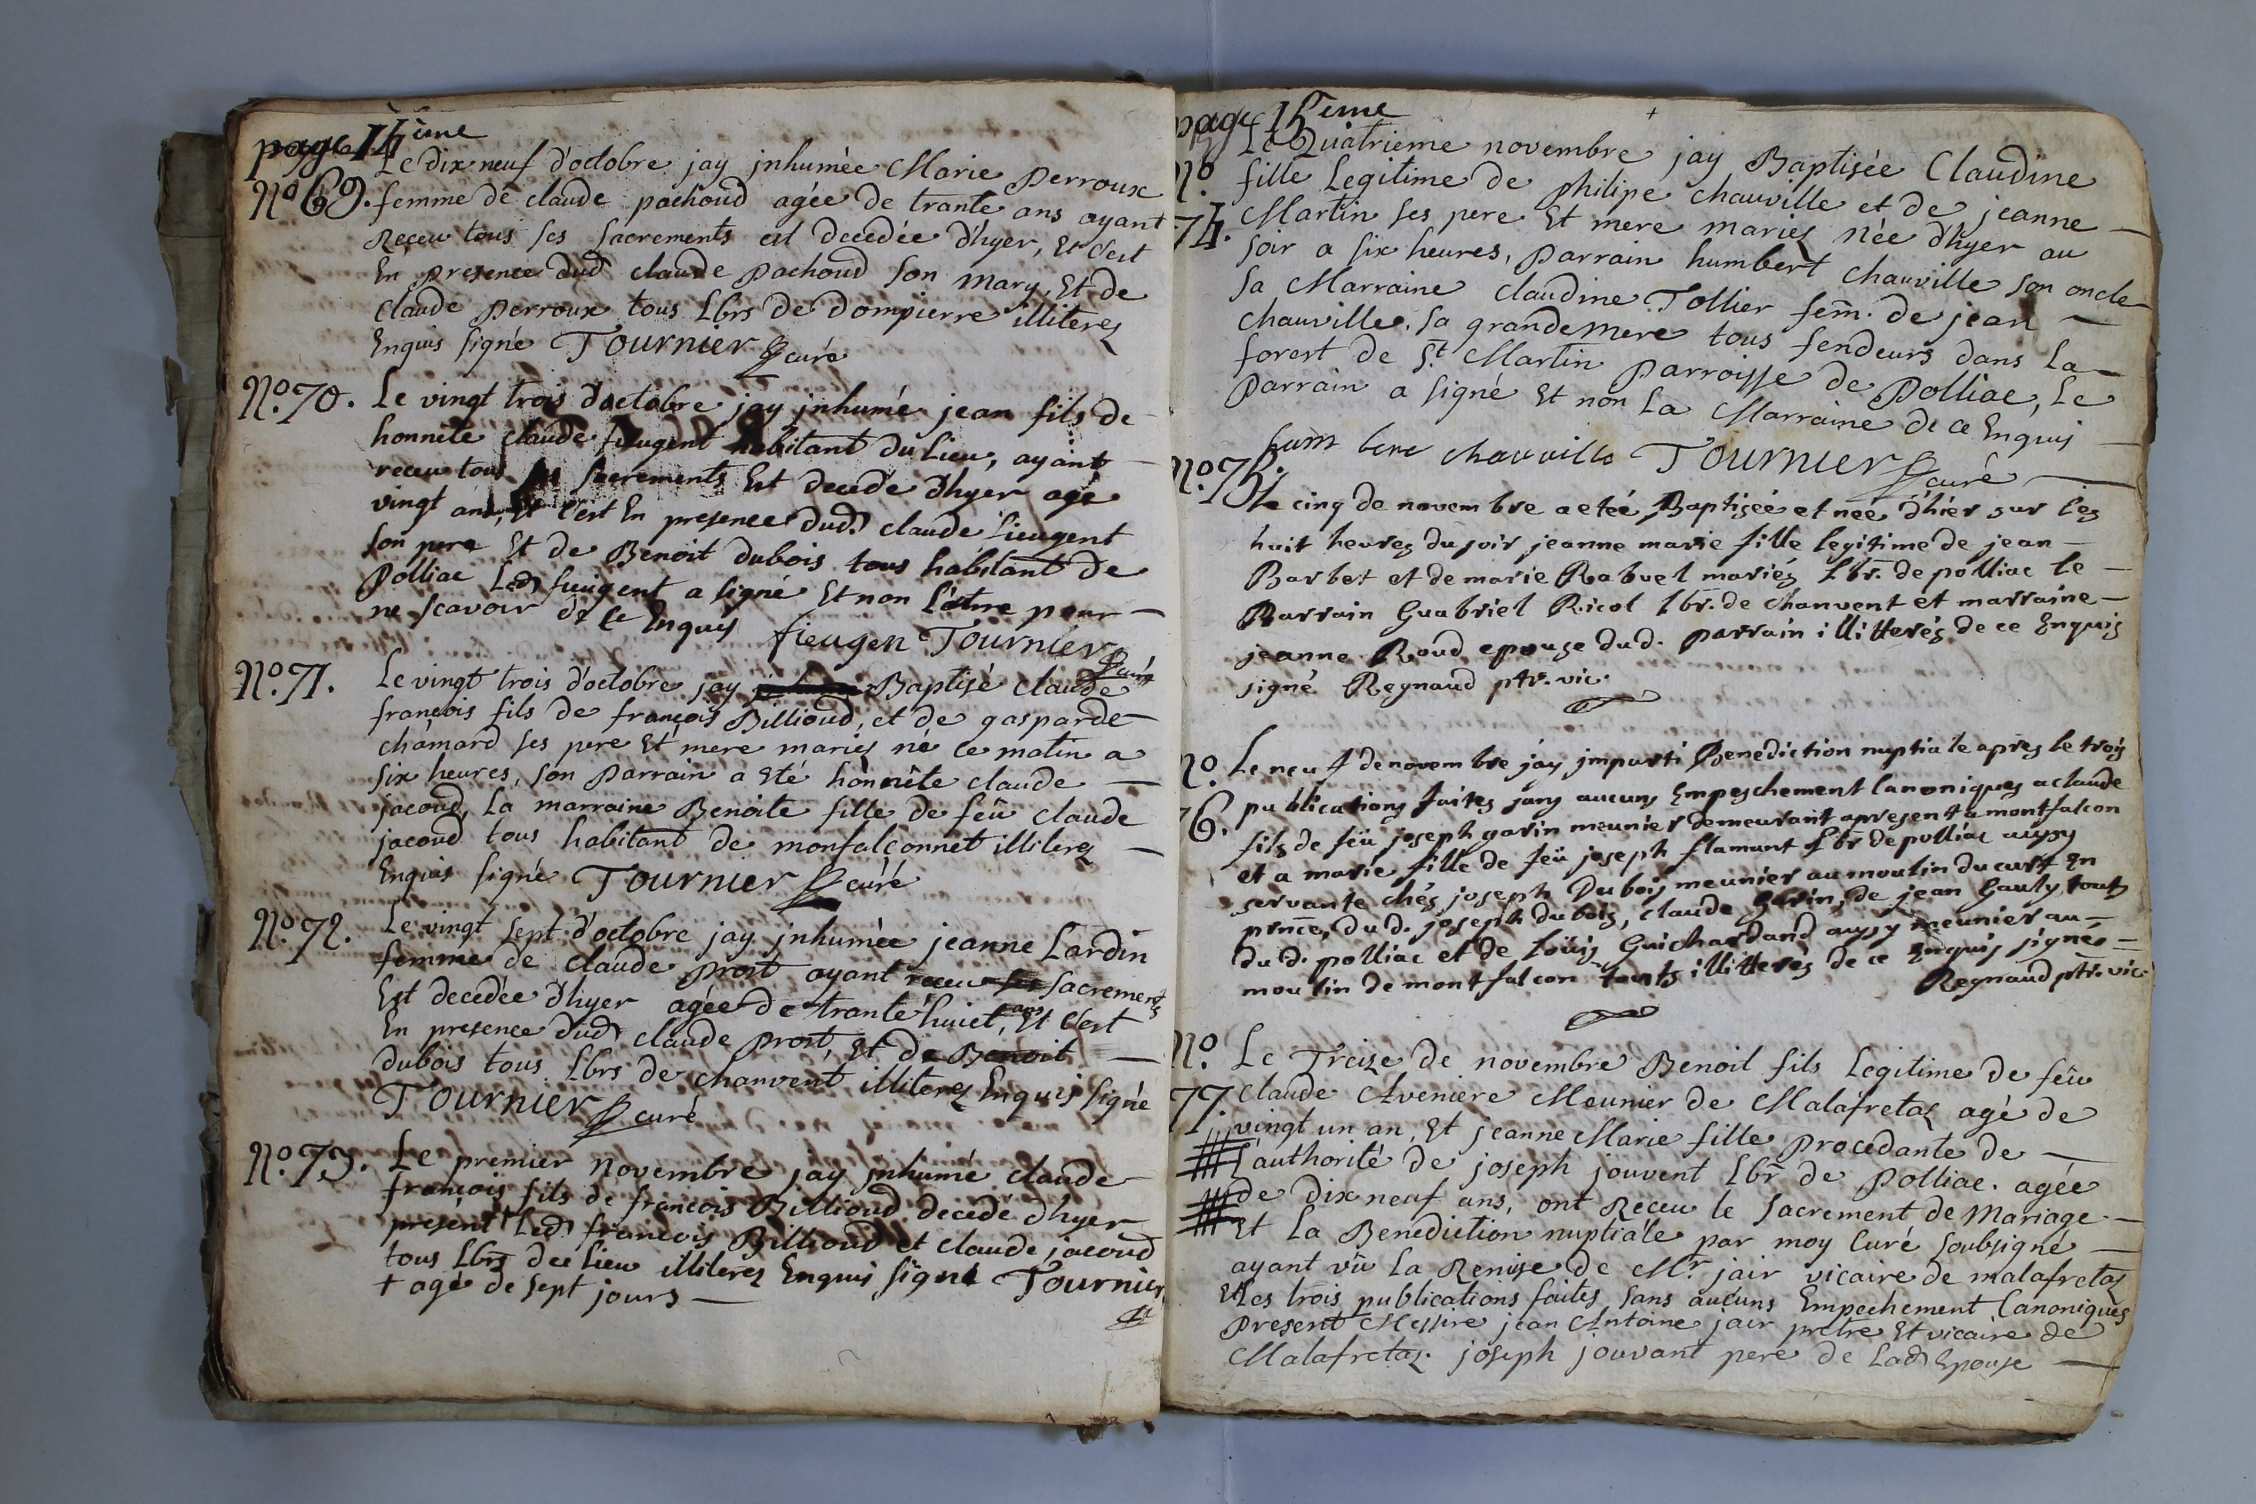 page 14eme
Le dix neuf d'octobre jay jnhumée Marie Perroux
No. 69. femme de claude pochoud agée de trante ans ayant
Reçeu tous ses sacrements est decedée d'hyer, Et c'est
En presence dud claude pochoud son mary, Et de
claude Perroux tous Lbrs de Dompierre illiterez
Enquis signé Tournier curé
No. 70. Le vingt trois d'octobre jay jnhumé jean fils de
honnête claude fieugent habitant du Lieu, ayant
receu tous ses sacrements Est decedé d'hyer agé
vingt ans, Et c'est En presence dud. claude fieugent
son pere Et de Benoit dubois tous habitant de
Polliac Led fieugent a signé Et non L'autre pour
ne scavoir de ce Enquis fieugen Tournier curé
No. 71. Le vingt trois d'octobre jay Baptisé claude
françois fils de françois Billioud, et de gasparde
chamard ses pere Et mere mariez né ce matin a
six heures, son Parrain a Eté honnête claude
jacoud, La marraine Benoite fille de feû claude
jacoud tous habitant de monfalconnet illiterez
Enquis signé Tournier curé
No. 72. Le vingt sept d'octobre jay jnhumée jeanne Lardin
femme de claude Prost ayant receu ses sacrements
Est decedée d'hyer agée de trante huict ans, Et c'est
En presence dud claude Prost, Et de Benoit
dubois tous Lbrs de chanvent illiterez Enquis signé
Tournier curé
No. 73. Le premier novembre jay jnhumé claude
françois fils de francois Billioud decedé d'hyer
present Led françois Billioud et claude jacoud
tous Lbrs du Lieu illiterez Enquis signé Tournier
+ agé de sept jours
page 15eme
Le Quatrieme novembre jay Baptisée Claudine
No. fille Legitime de philipe chauville et de jeanne
74. Martin ses pere Et mere mariez Née d'hyer au
soir a six heures, Parrain humbert chauville son oncle
sa Marraine claudine Tollier fem. de jean
chauville sa grande mere tous fendeurs dans La
forest de St. Martin Parroisse de Polliac, Le
Parrain a signé Et non La Marraine de ce Enquis
hum bere chauville Tournier curé
No. 75. Le cinq de novembre a eteé Baptizée et née d'hier sur les
huit heures du soir jeanne marie fille legitime de jean
Barbet et de marie Rabuel mariés Lbr. de polliac le
Parrain Guabriel Ricol lbr. de chanvent et marraine
jeanne Roud epouze dud. parrain illitterés de ce Enquis
signé Regnaud ptr. vic.
No. Le neuf de novembre jay imparti Benediction nuptiale apres le trois
publications faites sans aucuns Empeschement Canoniques a claude
76. fils de feü joseph garin meunier demeurant apresent a montfalcon
et a marie fille de feü joseph flamant Lbr de polliac aussy
servante chés joseph Dubois meunier au moulin du curt En
prnce, dud. joseph dubois, claude garin, de jean Gauly touts
dud. polliac et de Loüis Guichardand aussy meunier au
moulin de montfalcon touts illitterés de ce Enquis signés
Regnaud ptr. vic
No. Le Treize de novembre Benoit fils Legitime de feû
77. Claude Aveniere Meunier de Malafretaz agé de
vingt un an, Et jeanne Marie fille Procedante de
L'authorité de joseph jouvent Lbr de Polliac. agée
de Dix neuf ans, ont Receu le sacrement de Mariage
Et La Benediction nuptiale par moy Curé soubsigné
ayant vû La Remise de Mr. jair vicaire de malafretaz
Et les trois publications faites sans aucuns Empechement Canoniques
Present Messire jean Antoine jair prêtre Et vicaire de
Malafretaz. joseph jouvant pere de Lad Epouse